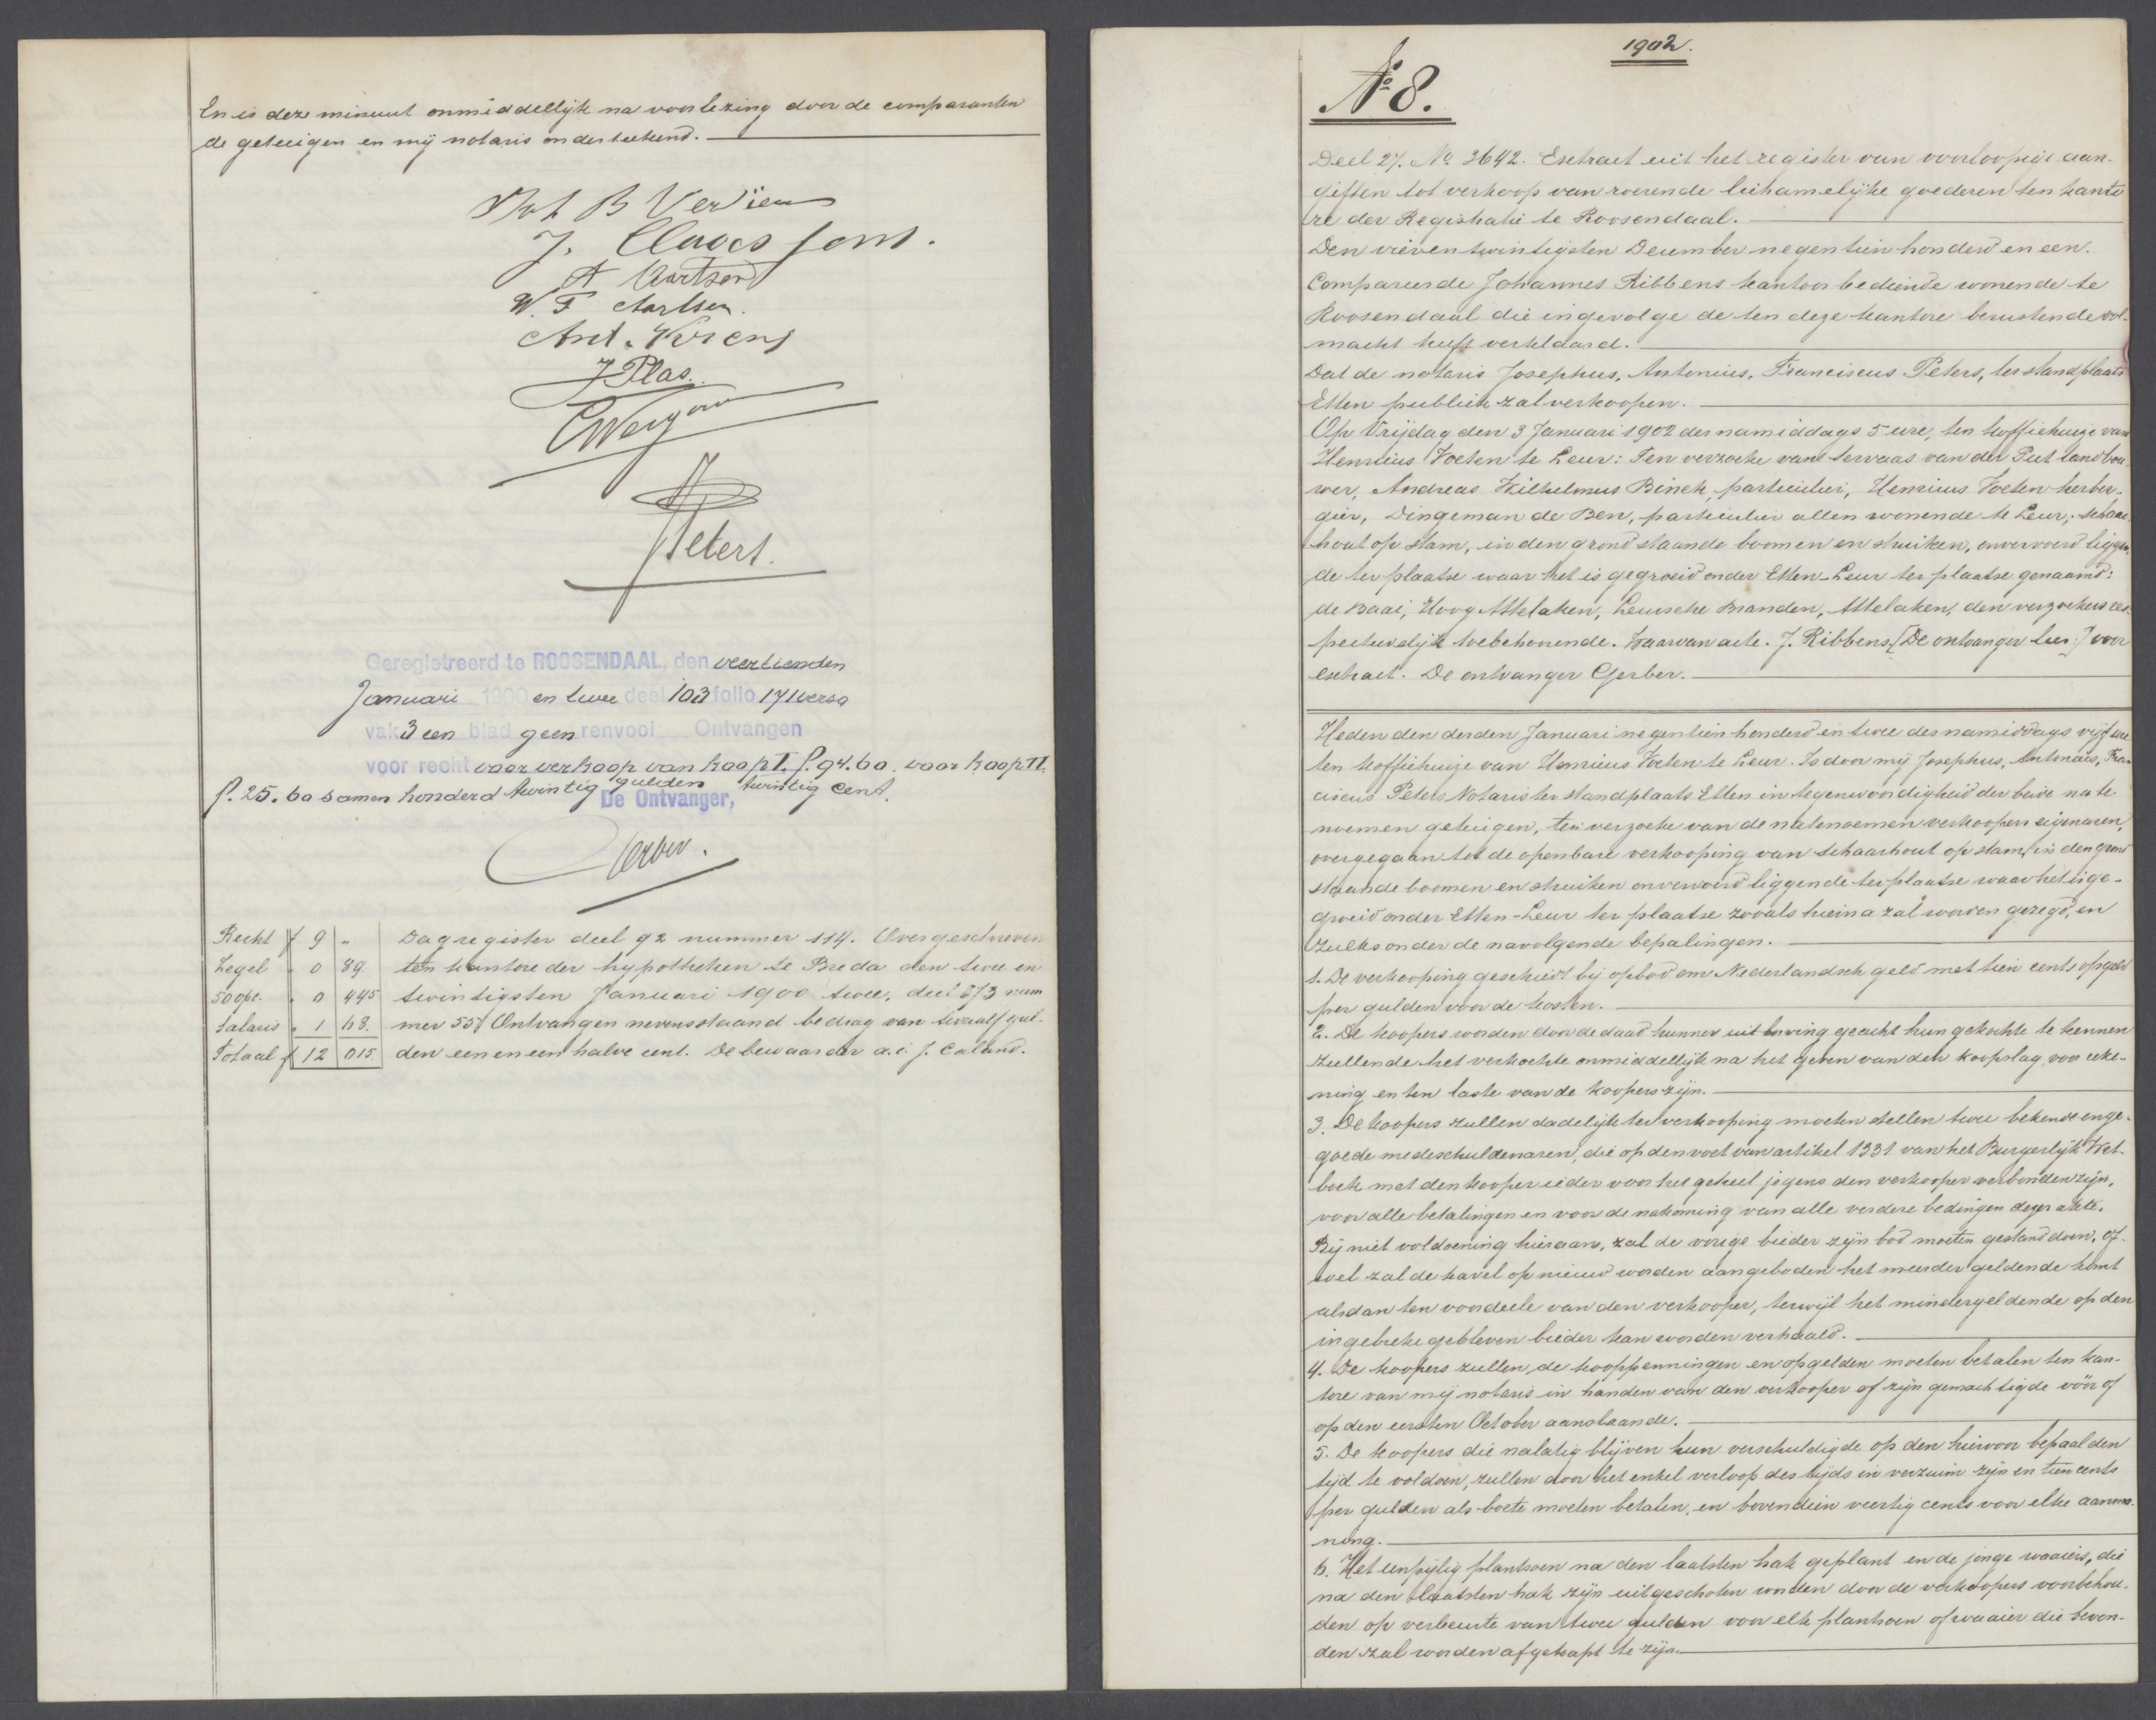 En is deze minuut onmiddellijk na voorlezing door de comparanten
de getuigen en mij notaris onderteekend.
B Verdien
J. Claassens.
A Aartsen
W. F Aartsen.
Ant. Kerens
J Plas.
Peters.
Geregistreerd te ROOSENDAAL, den veertienden
Januari 1900 en twee deel 103 folio 17 verso
vak 3 een blad geen renvooi Ontvangen
voor recht voor verkoop van koop I. f. 94.60. voor koop II.
f. 25.60 samen honderd twintig gulden twintig cent.
De Ontvanger,
Gerber.
Recht f 9 " Dagregister deel 92 nummer 114. Overgeschreven
Zegel " 0 89 ten kantore der hypotheken te Breda den twee en
50 opc. " 0 445 twintigsten Januari 1900 twee, deel 873 num
Salaris " 1 68. mer 55 Ontvangen nevensstaand bedrag van twaalf gul-
Totaal f 12 015 den een en een halve cent. De bewaarder a.i. J. Caland.
1902.
No 8.
Deel 27. No 3642. Extract uit het register van voorloopige aan-
giften tot verkoop van roerende lichamelijke goederen ten kanto
re der Registratie te Roosendaal.
Den vierentwintigsten December negentien honderd en een.
Compareerde Johannes Ribbens kantoorbediende wonende te
Roosendaal die ingevolge de ten deze kantore berustende vol-
macht heeft verklaard.
Dat de notaris Josephus, Antonius, Franciscus Peters, ter standplaats
Etten publiek zal verkoopen.
Op Vrijdag den 3 Januari 1902 des namiddags 5 ure, ten koffiehuize van
Henricus Voeten te Leur: Ten verzoeke van Servaas van der Put landbou
wer, Andreas Wilhelmus Binck, particulier, Henricus Voeten herber-
gier, Dingeman de Ben, particulier allen wonende te Leur; schaar
hout op stam, in den grond staande boomen en struiken, onvervoerd liggen
de ter plaatse waar het is gegroeid onder Etten-Leur ter plaatse genaamd:
de Baai, Hoog Attelaken, Leursche Branden, Attelaken, den verzoekers res-
pectievelijk toebehoorende. Waarvan acte. J. Ribbens, [De ontvanger (get.)] voor
extract. De ontvanger Gerber.
Heden den derden Januari negentien honderd en twee des namiddags vijf ure
ten koffiehuize van Henricus Voeten te Leur. Is door mij Josephus, Antonius, Fran
ciscus Peters Notaris ter standplaats Etten in tegenwoordigheid der beide na te
noemen getuigen, ten verzoeke van de natenoemen verkoopers eigenaren,
overgegaan tot de openbare verkooping van schaarhout op stam, in den grond
staande boomen en struiken onvervoerd liggende ter plaatse waar het is ge-
groeid onder Etten-Leur ter plaatse zooals hierna zal worden gezegd, en
zulks onder de navolgende bepalingen.
1. De verkooping geschiedt bij opbod om Nederlandsch geld met tien cents opgeld
per gulden voor de kosten.
2. De koopers worden door de daad hunner uitloving geacht hun gekochte te kennen
zullende het verkochte onmiddellijk na het geven van den koopslag voor reke-
ning en ten laste van de koopers zijn.
3. De koopers zullen dadelijk ter verkooping moeten stellen twee bekende en ge-
goede medeschuldenaren, die op den voet van artikel 1331 van het Burgerlijk Wet-
boek met den kooper ieder voor het geheel jegens den verkooper verbonden zijn,
voor alle betalingen en voor de nakoming van alle verdere bedingen dezer akte.
Bij niet voldoening hieraan, zal de vorige bieder zijn bod moeten gestand doen, of
wel zal de kavel op nieuw worden aangeboden het meerder geldende komt
alsdan ten voordeele van den verkooper, terwijl het mindergeldende op den
in gebreke gebleven bieder kan worden verhaald.
4. De koopers zullen de kooppenningen en opgelden moeten betalen ten kan-
tore van mij notaris in handen van den verkooper of zijn gemachtigde vóór of
op den eersten October aanstaande.
5. De koopers die nalatig blijven hun verschuldigde op den hiervoor bepaalden
tijd te voldoen, zullen door het enkel verloop des tijds in verzuim zijn en tien cents
per gulden als boete moeten betalen, en bovendien veertig cents voor elke aanma-
ning.
6. Het eenpijlig plantsoen na den laatsten hak geplant en de jonge waaiers, die
na den laatsten hak zijn uitgeschoten worden door de verkoopers voorbehou-
den op verbeurte van twee gulden voor elk plantsoen of waaier die bevon-
den zal worden afgekapt te zijn.